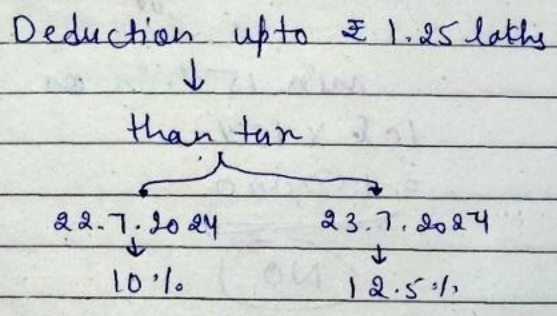 Deduction upto ₹ 1.25 lakhs
↓
than tax
22.7.2024 23.7.2024
↓ ↓
10% 12.5%